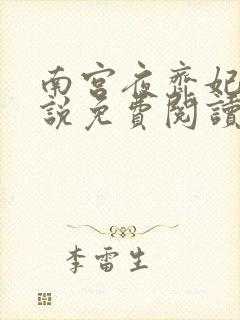 南宫夜齊妃
說免費閱讀
李雷生